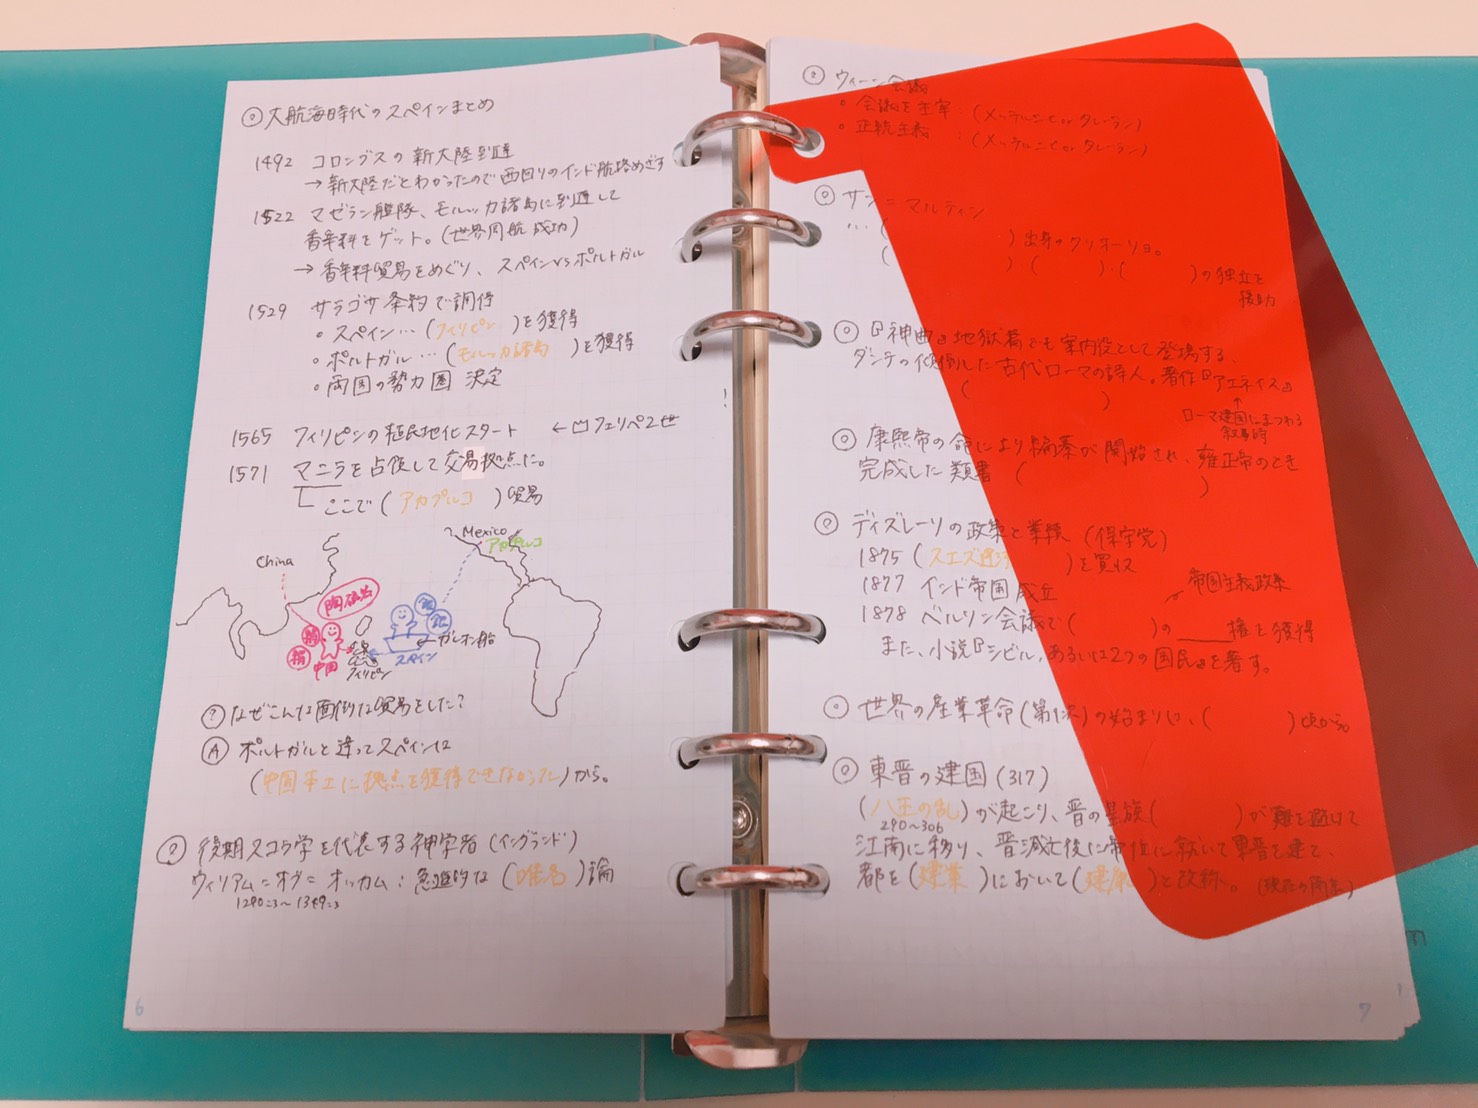 大航海時代のスペインまとめ
1492 コロンブスの新大陸到達
→新大陸だとわかったので西回りのインド航路めざす
1522 マゼラン艦隊、モルッカ諸島に到達して
香辛料をゲット。(世界周航成功)
→香辛料貿易をめぐり、スペインvsポルトガル
1529 サラゴサ条約で調停
・スペイン…(フィリピン)を獲得
・ポルトガル…(モルッカ諸島)を獲得
・両国の勢力圏決定
1565 フィリピンの植民地化スタート ← フェリペ2世
1571 マニラを占領して交易拠点に。
ここで(アカプルコ)貿易
China
Mexico
アカプルコ
陶磁器
絹
絹
中国
フィリピン
スペイン
銀
銀
←ガレオン船
? なぜこんな面倒な貿易をした?
A ポルトガルと違ってスペインは
(中国本土に拠点を獲得できなかった)から。
後期スコラ学を代表する神学者(イングランド)
ウィリアム=オヴ=オッカム:急進的な(唯名)論
1290ころ〜1349ころ
6
ウィーン会議
・会議を主宰:(メッテルニヒorタレーラン)
・正統主義:(メッテルニヒorタレーラン)
サン=マルティン
…( )出身のクリオーリョ。
( )・( )・( )の独立を
援助
『神曲』地獄篇でも案内役として登場する、
ダンテの傾倒した古代ローマの詩人。著作『アエネイス』
( )
↑
ローマ建国にまつわる
叙事詩
康熙帝の命により編纂が開始され、雍正帝のとき
完成した類書( )
ディズレーリの政策と業績(保守党)
1875 (スエズ運河 )を買収
1877 インド帝国成立
帝国主義政策
1878 ベルリン会議で( )の 権を獲得
また、小説『シビル、あるいは2つの国民』を著す。
世界の産業革命(第1次)の始まりは、( )
東晋の建国(317)
(八王の乱)が起こり、晋の皇族( )が難を避けて
290〜306
江南に移り、晋滅亡後に帝位に就いて東晋を建て、
都を(建業)において(建康)と改称。(現在の南京)
7